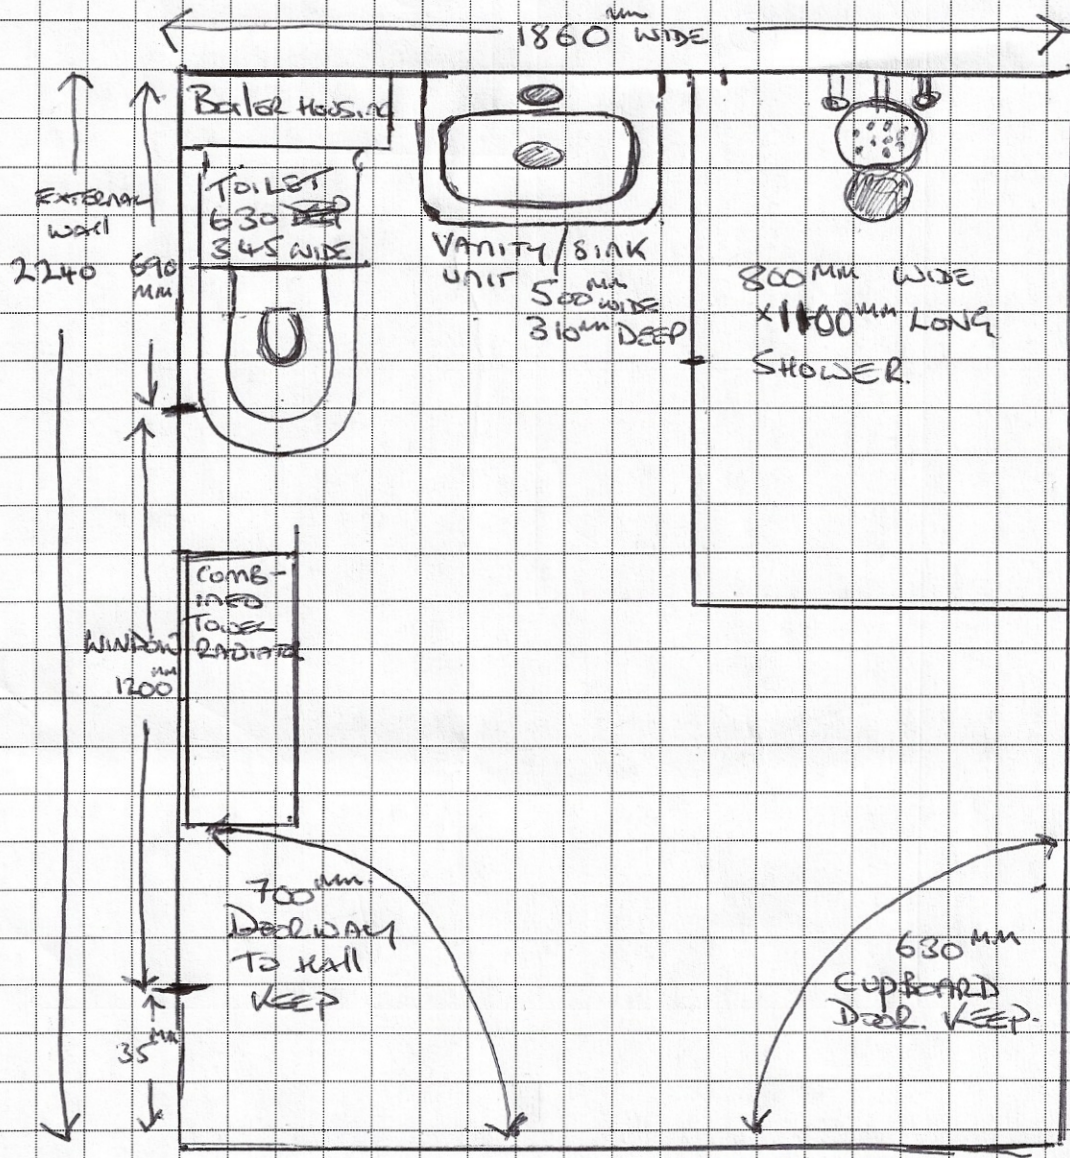 1860 mm WIDE
BOILER HOUSING
EXTERNAL
WALL
2240
690
MM
TOILET
630 DEEP
345 WIDE
VANITY/SINK
UNIT
500mm WIDE
310mm DEEP
800MM WIDE
x1100MM LONG
SHOWER.
COMB-
INED
TOWEL
RADIATOR
WINDOW
MM
1200
700mm.
DOORWAY
TO HALL
KEEP
630MM
CUPBOARD
DOOR. KEEP.
35MM